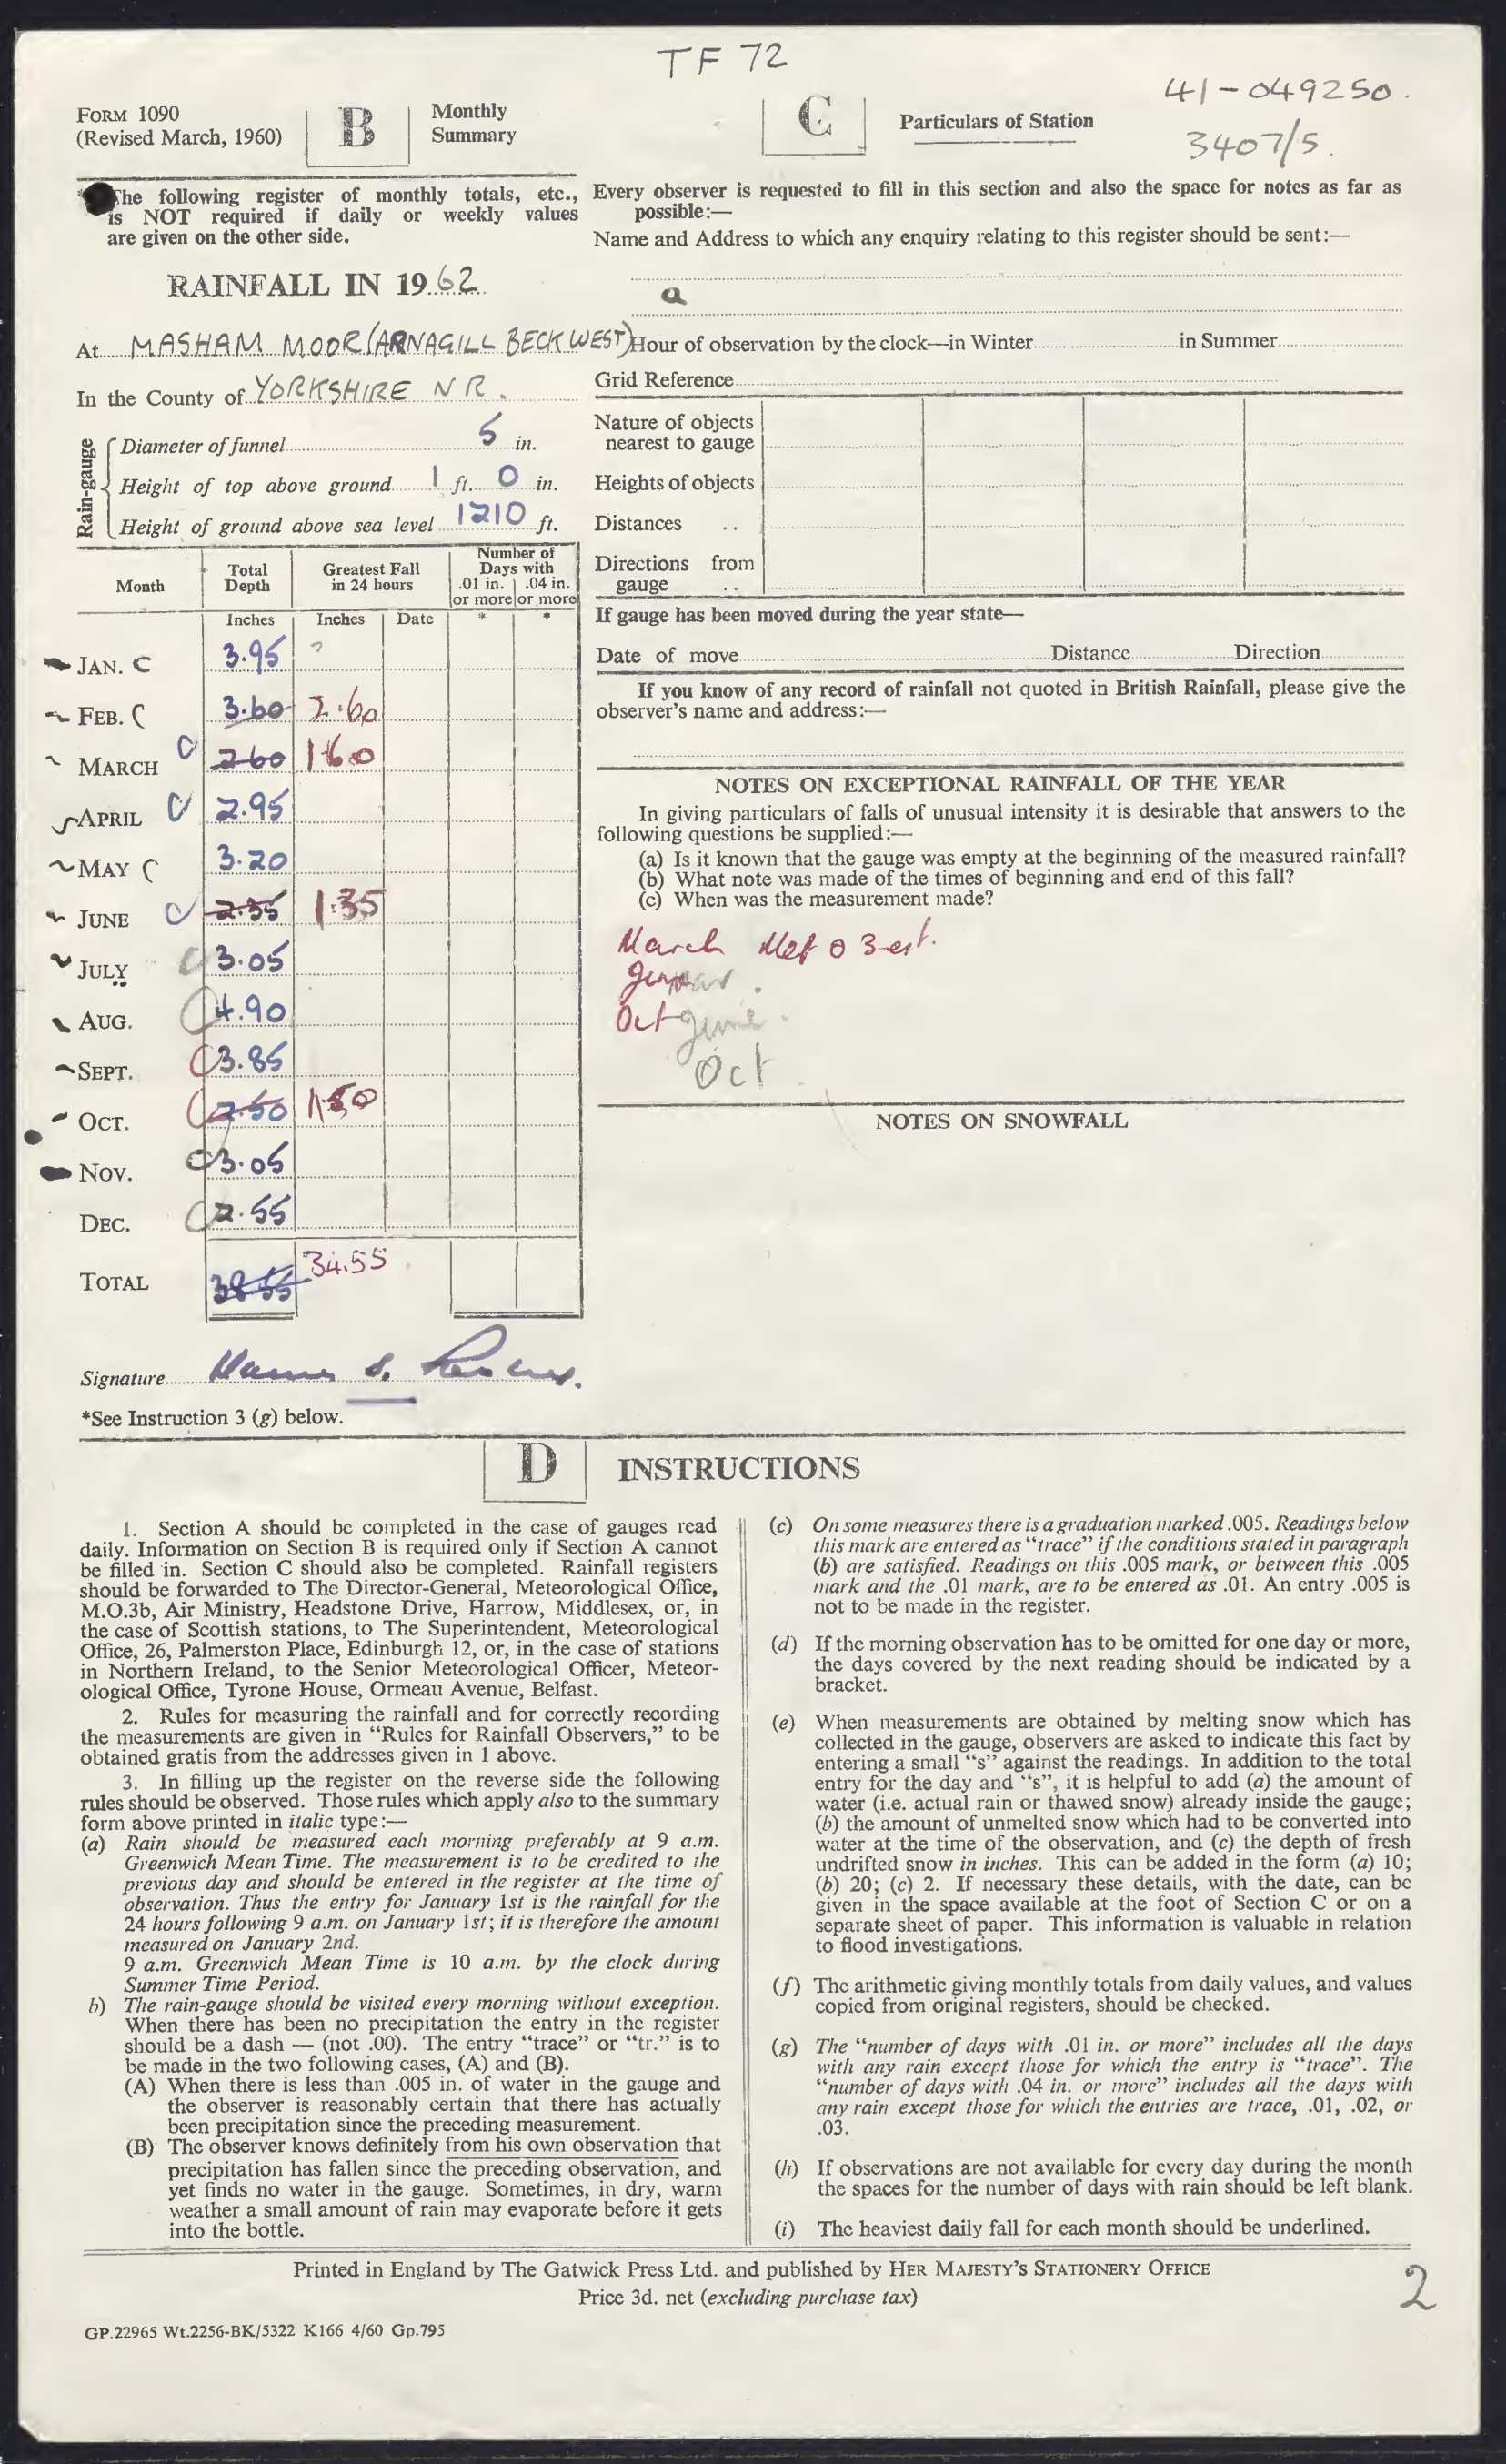 TF 72
41-049250.
3407/5.
FORM 1090
(Revised March, 1960)
B
Monthly
Summary
C
Particulars of Station
The following register of monthly totals, etc.,
is NOT required if daily or weekly values
are given on the other side.
RAINFALL IN 1962
At MASHAM MOOR (ARNAGILL BECK WEST)
In the County of YORKSHIRE N R.
Rain-gauge
Diameter of funnel 5 in.
Height of top above ground 1 ft. 0 in.
Height of ground above sea level 1210 ft.
Month Total Depth Greatest Fall in 24 hours Number of Days with .01 in. or more .04 in. or more
Inches Inches Date * *
JAN. C 3.95 ?
FEB. C 3.60 2.60
MARCH C 2.60 1.60
APRIL C 2.95
MAY C 3.20
JUNE C 2.35 1.35
JULY C 3.05
AUG. C 4.90
SEPT. C 3.85
OCT. C 2.50 1.50
NOV. C 3.05
DEC. C 2.55
TOTAL 38.55 34.55
Signature
*See Instruction 3 (g) below.
Every observer is requested to fill in this section and also the space for notes as far as
possible:—
Name and Address to which any enquiry relating to this register should be sent:—
a
Hour of observation by the clock—in Winter in Summer
Grid Reference
Nature of objects
nearest to gauge
Heights of objects
Distances ..
Directions from
gauge ..
If gauge has been moved during the year state—
Date of move Distance Direction
If you know of any record of rainfall not quoted in British Rainfall, please give the
observer's name and address:—
NOTES ON EXCEPTIONAL RAINFALL OF THE YEAR
In giving particulars of falls of unusual intensity it is desirable that answers to the
following questions be supplied:—
(a) Is it known that the gauge was empty at the beginning of the measured rainfall?
(b) What note was made of the times of beginning and end of this fall?
(c) When was the measurement made?
March Met O 3 est.
Oct June.
Oct
NOTES ON SNOWFALL
D
INSTRUCTIONS
1. Section A should be completed in the case of gauges read
daily. Information on Section B is required only if Section A cannot
be filled in. Section C should also be completed. Rainfall registers
should be forwarded to The Director-General, Meteorological Office,
M.O.3b, Air Ministry, Headstone Drive, Harrow, Middlesex, or, in
the case of Scottish stations, to The Superintendent, Meteorological
Office, 26, Palmerston Place, Edinburgh 12, or, in the case of stations
in Northern Ireland, to the Senior Meteorological Officer, Meteor-
ological Office, Tyrone House, Ormeau Avenue, Belfast.
2. Rules for measuring the rainfall and for correctly recording
the measurements are given in "Rules for Rainfall Observers," to be
obtained gratis from the addresses given in 1 above.
3. In filling up the register on the reverse side the following
rules should be observed. Those rules which apply also to the summary
form above printed in italic type:—
(a) Rain should be measured each morning preferably at 9 a.m.
Greenwich Mean Time. The measurement is to be credited to the
previous day and should be entered in the register at the time of
observation. Thus the entry for January 1st is the rainfall for the
24 hours following 9 a.m. on January 1st; it is therefore the amount
measured on January 2nd.
9 a.m. Greenwich Mean Time is 10 a.m. by the clock during
Summer Time Period.
b) The rain-gauge should be visited every morning without exception.
When there has been no precipitation the entry in the register
should be a dash — (not .00). The entry "trace" or "tr." is to
be made in the two following cases, (A) and (B).
(A) When there is less than .005 in. of water in the gauge and
the observer is reasonably certain that there has actually
been precipitation since the preceding measurement.
(B) The observer knows definitely from his own observation that
precipitation has fallen since the preceding observation, and
yet finds no water in the gauge. Sometimes, in dry, warm
weather a small amount of rain may evaporate before it gets
into the bottle.
(c) On some measures there is a graduation marked .005. Readings below
this mark are entered as "trace" if the conditions stated in paragraph
(b) are satisfied. Readings on this .005 mark, or between this .005
mark and the .01 mark, are to be entered as .01. An entry .005 is
not to be made in the register.
(d) If the morning observation has to be omitted for one day or more,
the days covered by the next reading should be indicated by a
bracket.
(e) When measurements are obtained by melting snow which has
collected in the gauge, observers are asked to indicate this fact by
entering a small "s" against the readings. In addition to the total
entry for the day and "s", it is helpful to add (a) the amount of
water (i.e. actual rain or thawed snow) already inside the gauge;
(b) the amount of unmelted snow which had to be converted into
water at the time of the observation, and (c) the depth of fresh
undrifted snow in inches. This can be added in the form (a) 10;
(b) 20; (c) 2. If necessary these details, with the date, can be
given in the space available at the foot of Section C or on a
separate sheet of paper. This information is valuable in relation
to flood investigations.
(f) The arithmetic giving monthly totals from daily values, and values
copied from original registers, should be checked.
(g) The "number of days with .01 in. or more" includes all the days
with any rain except those for which the entry is "trace". The
"number of days with .04 in. or more" includes all the days with
any rain except those for which the entries are trace, .01, .02, or
.03.
(h) If observations are not available for every day during the month
the spaces for the number of days with rain should be left blank.
(i) The heaviest daily fall for each month should be underlined.
Printed in England by The Gatwick Press Ltd. and published by HER MAJESTY'S STATIONERY OFFICE
Price 3d. net (excluding purchase tax)
GP.22965 Wt.2256-BK/5322 K166 4/60 Gp.795
2